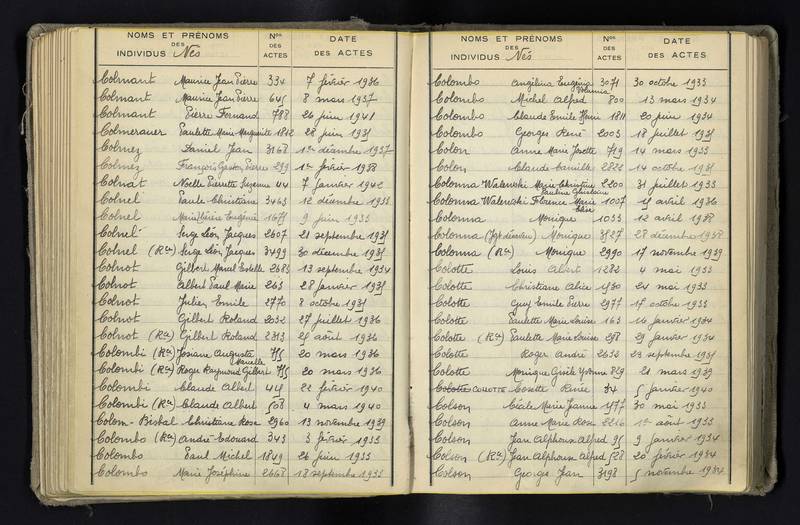 NOMS ET PRÉNOMS DES INDIVIDUS Nés Nos DES ACTES DATE DES ACTES
Colmant Maurice Jean Pierre 334 7 février 1936
Colmant Maurice Jean Pierre 645 8 mars 1937
Colmant Pierre Fernand 788 26 juin 1941
Colmerauer Paulette Marie Marguerite 1812 28 juin 1935
Colmez Daniel Jean 3168 1er décembre 1937
Colmez François Gaston Pierre 299 1er février 1938
Colnat Noëlle Pierrette Suzanne 44 7 janvier 1942
Colnel Paule Christiane 3463 12 décembre 1933
Colnel Eugénie 1675 9 juin 1933
Colnel Serge Léon Jacques 2607 21 septembre 1935
Colnel (Ron) Serge Léon Jacques 3499 30 décembre 1935
Colnot Gilbert Marcel Estelle 2685 13 septembre 1934
Colnot Albert Paul Marie 263 28 janvier 1935
Colnot Julien Emile 2770 8 octobre 1935
Colnot Gilbert Roland 2032 27 juillet 1936
Colnot (Ron) Gilbert Roland 2313 25 août 1936
Colombi (Ron) Josiane Augusta Marcelle 755 20 mars 1936
Colombi (Ron) Roger Raymond Gilbert 755 20 mars 1936
Colombi Claude Albert 445 22 février 1940
Colombi (Ron) Claude Albert 508 4 mars 1940
Colom-Bisbal Christiane Rose 2960 13 novembre 1939
Colombo (Ron) André Edouard 343 3 février 1933
Colombo Paul Michel 1849 26 juin 1933
Colombo Marie Joséphine 2668 18 septembre 1933
NOMS ET PRÉNOMS DES INDIVIDUS Nés Nos DES ACTES DATE DES ACTES
Colombo Angélina Eugénia 3071 30 octobre 1933
Colombo Michel Alfred 800 13 mars 1934
Colombo Claude Emile Henri 1811 20 juin 1934
Colombo Georges René 2003 18 juillet 1935
Colon Anne Marie Josette 719 14 mars 1933
Colon Claude Camille 2822 14 octobre 1935
Colonna Walewski Marie Christine Pauline Ghislaine 2200 31 juillet 1933
Colonna Walewski Florence Marie Elise 1007 15 avril 1936
Colonna Monique 1033 12 avril 1938
Colonna (Jgt désaveu) Monique 3527 28 décembre 1938
Colonna (Ron) Monique 2990 17 novembre 1939
Colotte Louis Albert 1282 4 mai 1933
Colotte Christiane Alice 1530 24 mai 1933
Colotte Guy Emile Pierre 2977 17 octobre 1933
Colotte Paulette Marie Louise 163 16 janvier 1934
Colotte (Ron) Paulette Marie Louise 298 29 janvier 1934
Colotte Roger André 2632 23 septembre 1935
Colotte Monique Gisèle Yvonne 829 21 mars 1939
Colotte COLOTTE Cosette Renée 34 5 janvier 1940
Colson Cécile Marie Jeanne 1577 30 mai 1933
Colson Anne Marie Rose 2216 1er août 1933
Colson Jean Alphonse Alfred 95 9 janvier 1934
Colson (Ron) Jean Alphonse Alfred 528 20 février 1934
Colson Georges Jean 3198 5 novembre 1934